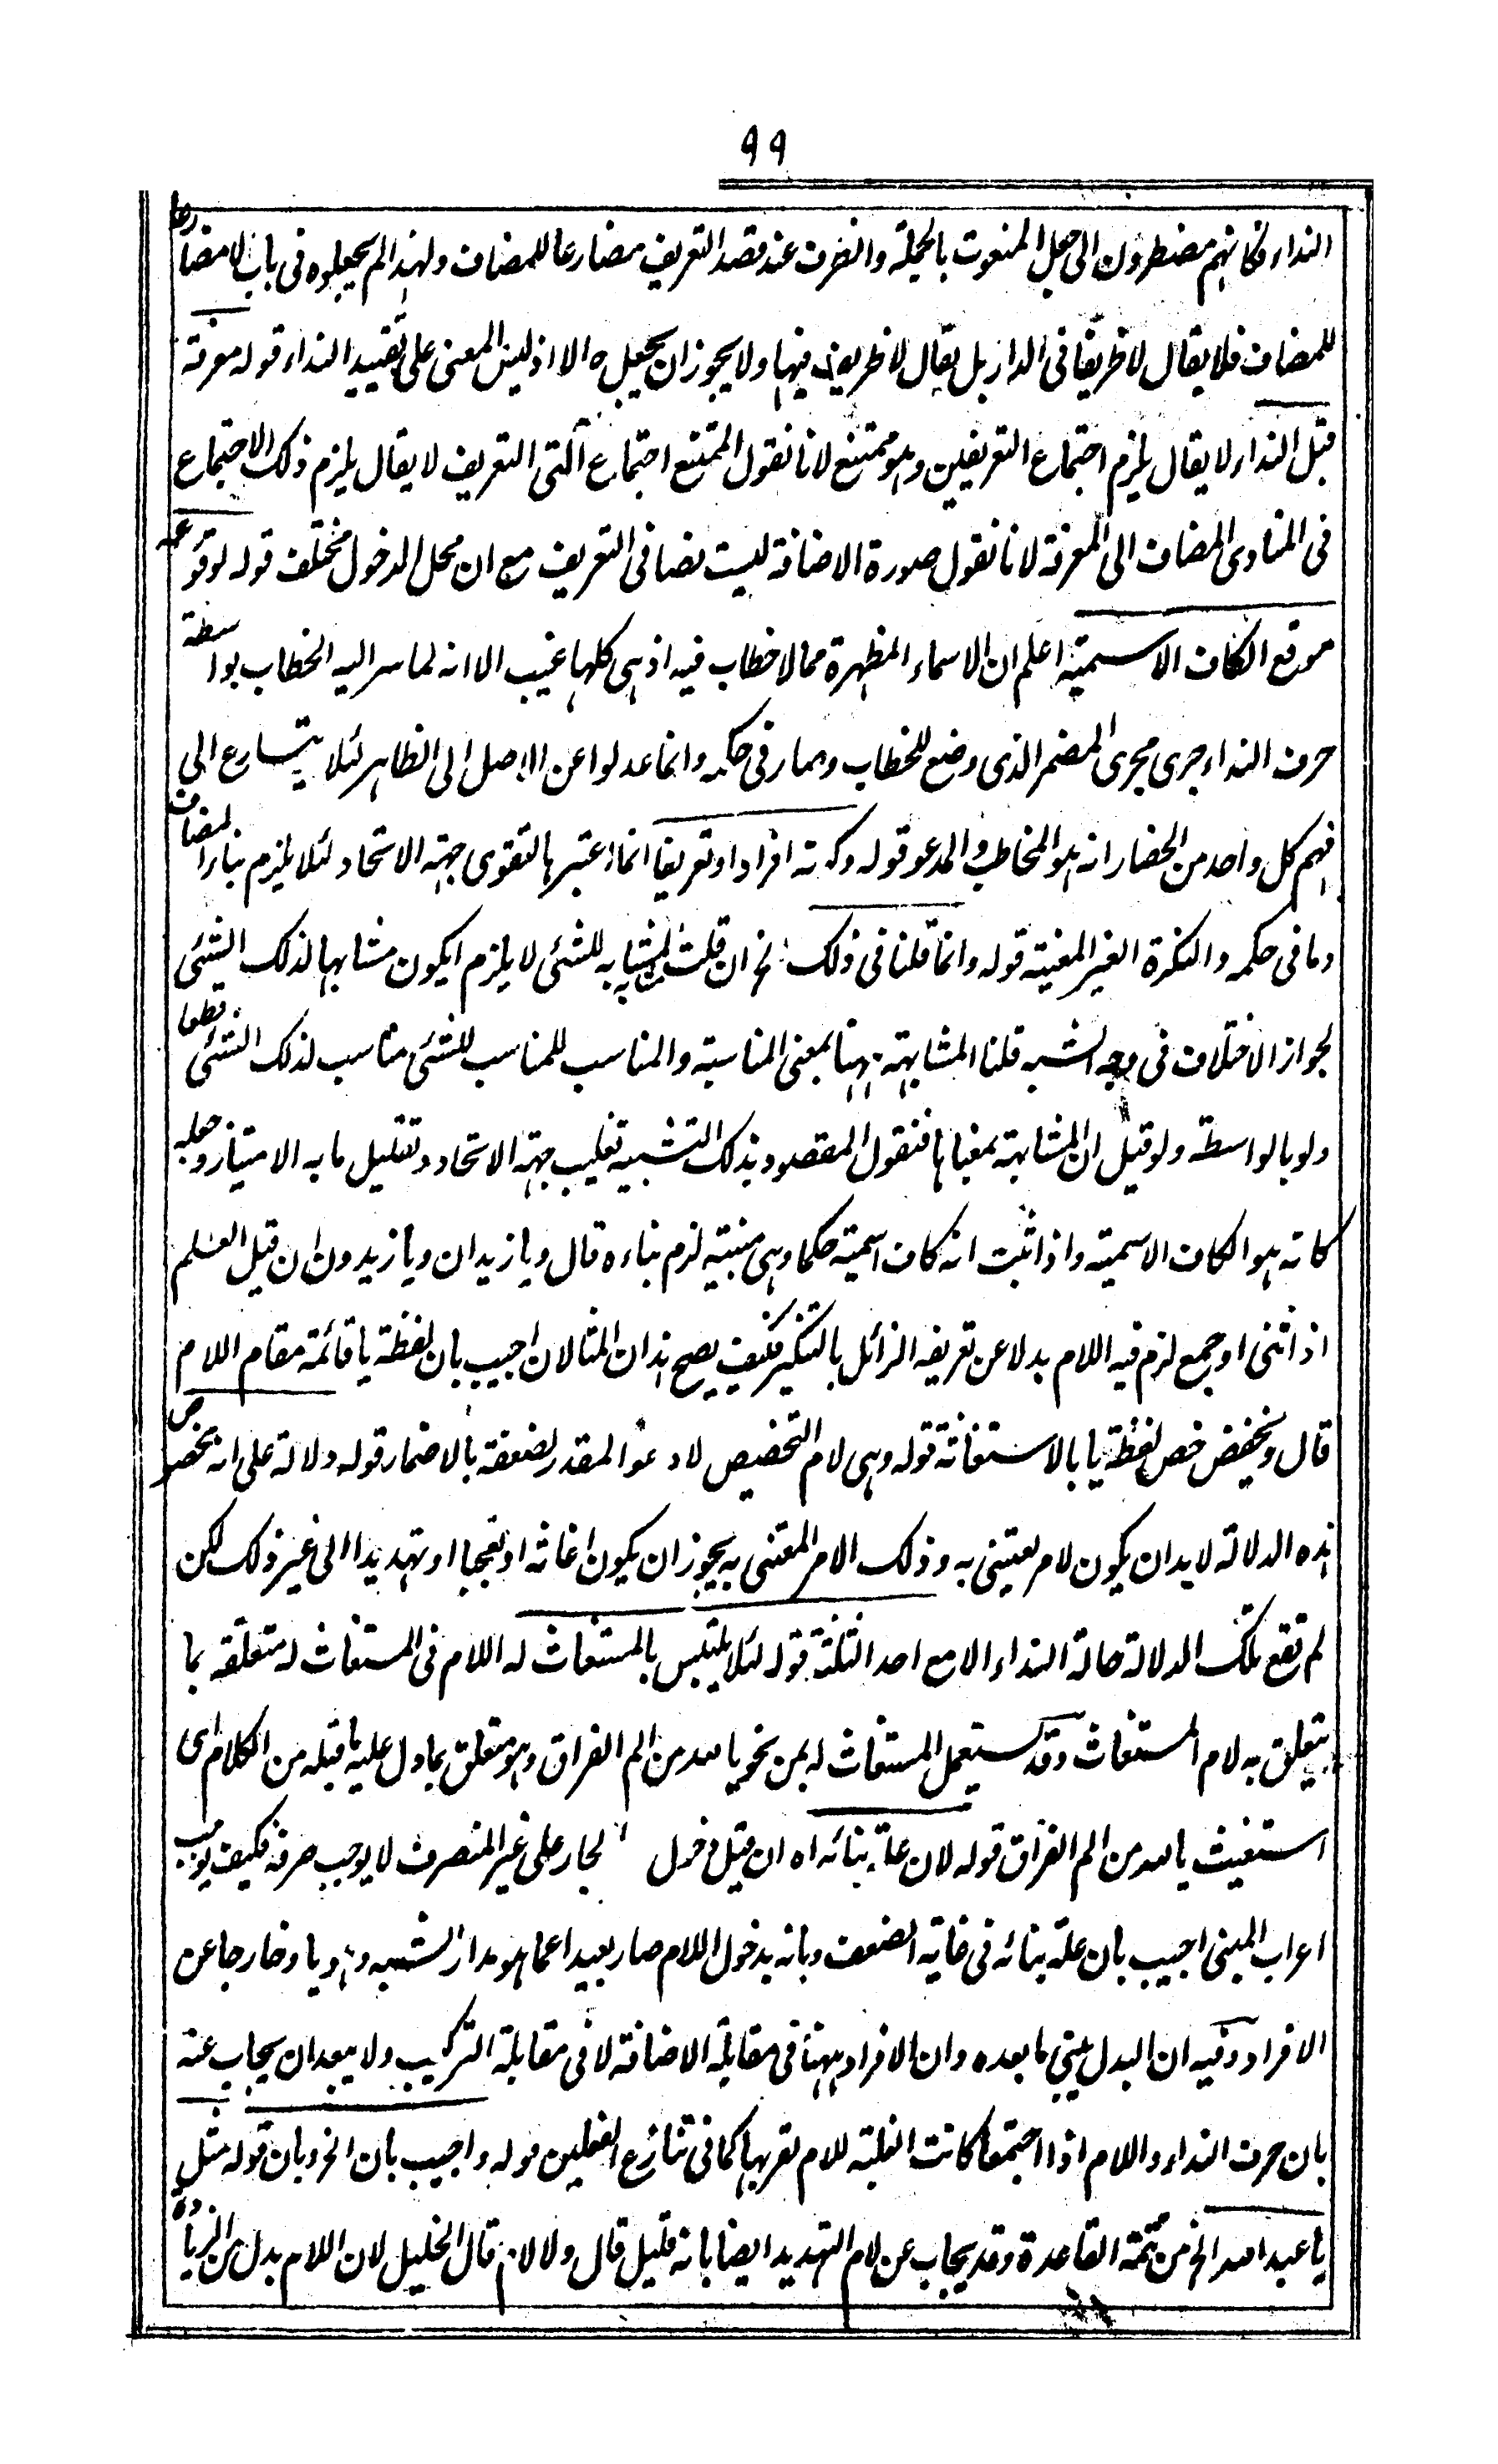 ۹۹
النداء فكانهم مضطرون الى جعل المنعوت بالجملة والظرف عند قصد التعريف مضارعا للمضاف ولهذا لم يجعلوه فى باب لا مضارعا
للمضاف فلا يقال لا ظريفا فى الدار بل يقال لا ظريف فيها ولا يجوز ان يجعل ه الا اذ ليس المعنى على تقييد النداء قوله معرفة
قبل النداء لا يقال يلزم اجتماع التعريفين وهو ممتنع لانا نقول الممتنع اجتماع آلتى التعريف لا يقال يلزم ذلك الاجتماع
فى المنادى المضاف الى المعرفة لانا نقول صورة الاضافة ليست نصا فى التعريف مع ان محل الدخول مختلف قوله لوقوعه
موقع الكاف الاسمية اعلم ان الاسماء المظهرة مما لا خطاب فيه اذ هى كلها غيب الا انه لما سر اليه الخطاب بواسطة
حرف النداء جرى مجرى المضمر الذى وضع للخطاب وصار فى حكمه وانما عدلوا عن الاصل الى الظاهر لئلا يتسارع الى
فهم كل واحد من الحضار انه هو المخاطب والمدعو قوله وكونه افرادا وتعريفا انما اعتبرها لتقوى جهة الاتحاد لئلا يلزم بناء المضاف
وما فى حكمه والنكرة الغير المعينة قوله وانما قلنا فى ذلك الخ ان قلت المشابه للشئى لا يلزم ان يكون مشابها لذلك الشئى
لجواز الاختلاف فى وجه الشبه قلنا المشابهة ههنا بمعنى المناسبة والمناسب للمناسب للشئى مناسب لذلك الشئى قطعا
ولو بالواسطة ولو قيل ان المشابهة بمعناها فنقول المقصود بذلك التشبيه تغليب جهة الاتحاد وتقليل ما به الامتياز وجعله
كانه هو الكاف الاسمية واذا ثبت انه كاف اسمية حكما وهى مبنية لزم بناءه قال ويا زيدان ويا زيدون ان قيل العلم
اذ اثنى او جمع لزم فيه اللام بدلا عن تعريفه الزائل بالتنكير فكيف يصح هذان المثالان اجيب بان لفظة يا قائمة مقام اللام
قال ويخفض خص لفظة يا بالاستغاثة قوله وهى لام التخصيص لادعو المقدر لضعفه بالاضمار قوله دلالة على انه مخصوص
هذه الدلالة لابد ان يكون لامر يعتنى به وذلك الامر المعتنى به يجوز ان يكون اغاثة او تعجبا او تهديدا الى غير ذلك لكن
لم تقع تلك الدلالة حالة النداء الا مع احد الثلثة قوله لئلا يلتبس بالمستغاث له اللام فى المستغاث له متعلقه بما
يتعلق به لام المستغاث وقد يستعمل المستغاث له بمن نحو يا لله من الم الفراق وهو متعلق بما دل عليه ما قبله من الكلام اى
استغيث يا لله من الم الفراق قوله لان علة بنائه اه ان قيل دخول الجار على غير المنصرف لا يوجب صرفه فكيف يوجب
اعراب المبنى اجيب بان علة بنائه فى غاية الضعف وبانه بدخول اللام صار بعيدا عما هو مدار الشبه وهو يا وخارجا عن
الافراد وفيه ان البدل يبنى ما بعده وان الافراد ههنا فى مقابلة الاضافة لا فى مقابلة التركيب ولا يبعد ان يجاب عنه
بان حرف النداء واللام اذا اجتمعا كانت الغلبة للام لقربها كما فى تنازع الفعلين قوله واجيب بان الخ وبان قوله مثل
يا عبد الله الخ من تتمة القاعدة وقد يجاب عن لام التهديد ايضا بانه قليل قال ولا لام قال الخليل لان اللام بدل من الزيادة